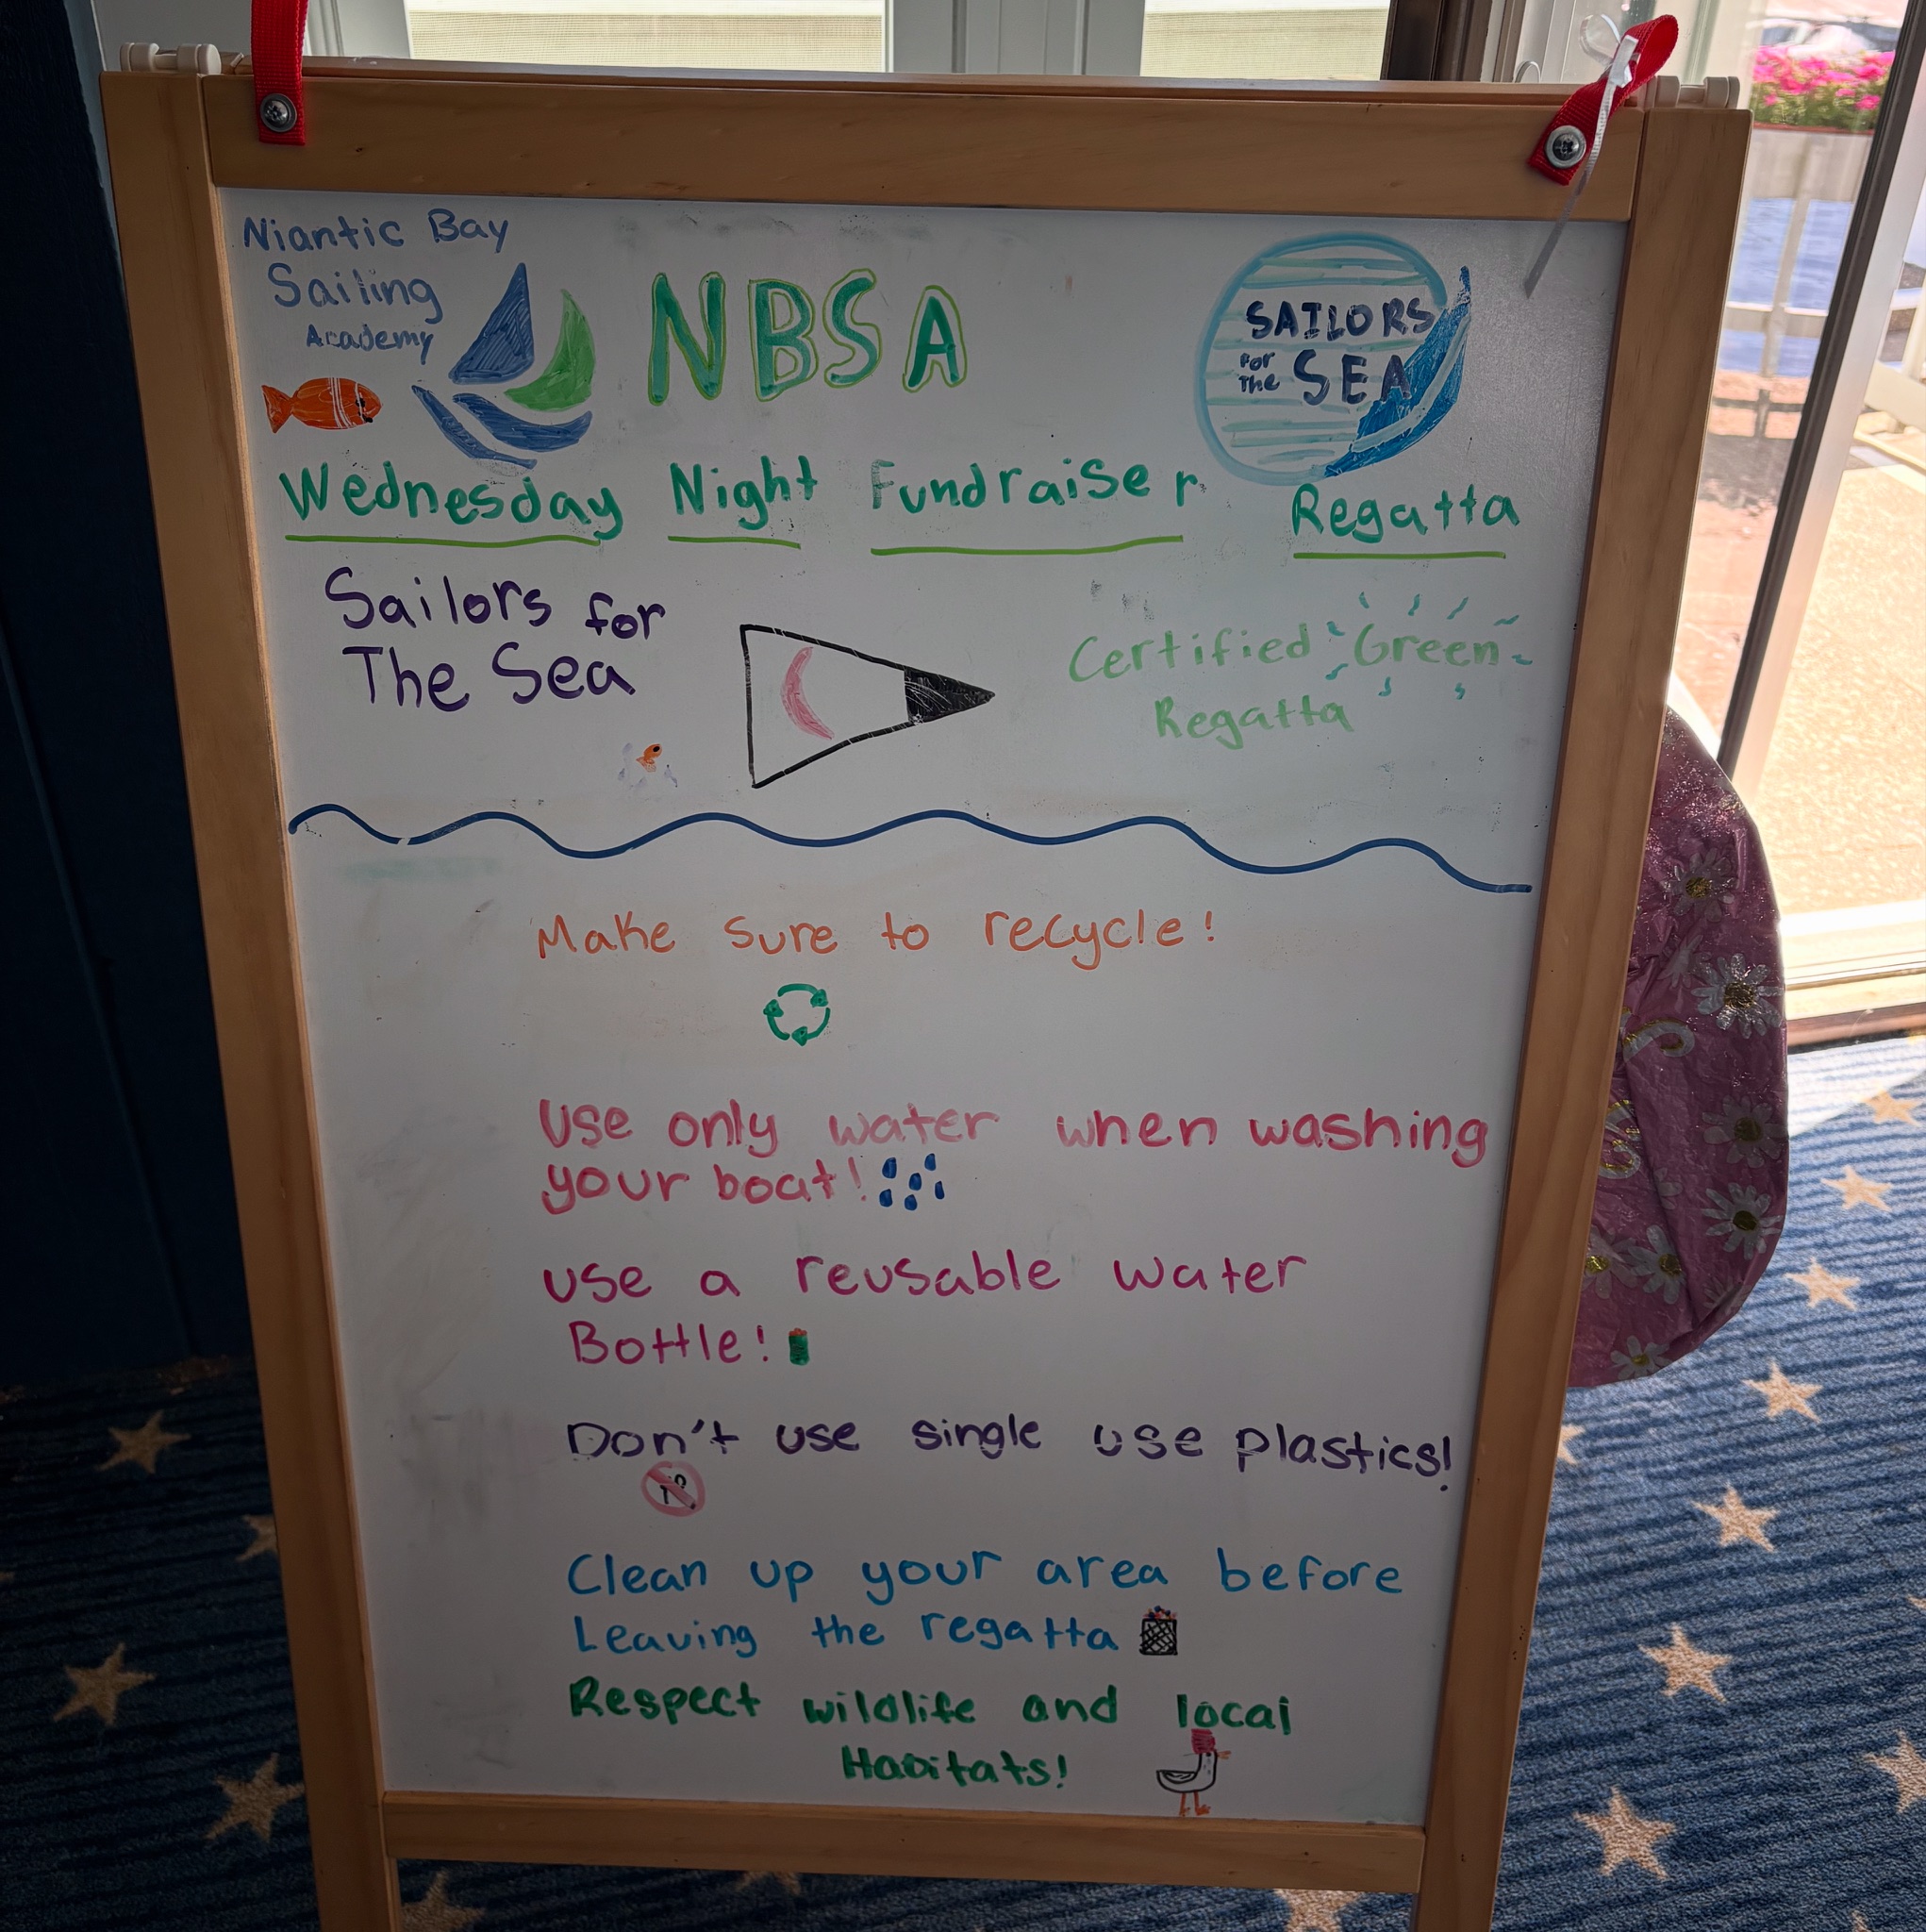 Niantic Bay
Sailing
Academy
NBSA
SAILORS
for
the SEA
Wednesday Night Fundraiser Regatta
Sailors for
The Sea
Certified Green
Regatta
Make sure to recycle!
Use only water when washing
your boat!
use a reusable water
Bottle!
Don't use single use plastics!
Clean up your area before
Leaving the regatta
Respect wildlife and local
Habitats!